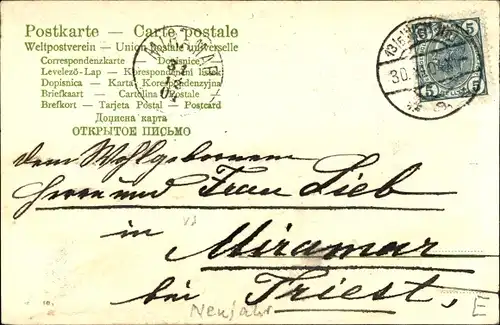 Postkarte – Carte postale
Weltpostverein – Union postale universelle
Correspondenzkarte — Dopisnice
Levelező-Lap – Korespondenční lístek
Dopisnica – Karta Korespondencyjna
Briefkaart – Cartolina Postale –
Brefkort – Tarjeta Postal – Postcard
Дописна карта
ОТКРЫТОЕ ПИСЬМО
31
12
04
5 5
30.
dem Wohlgebornem
Herrn und Frau Lieb
in
Miramar
bei Triest,
Neujahr
E